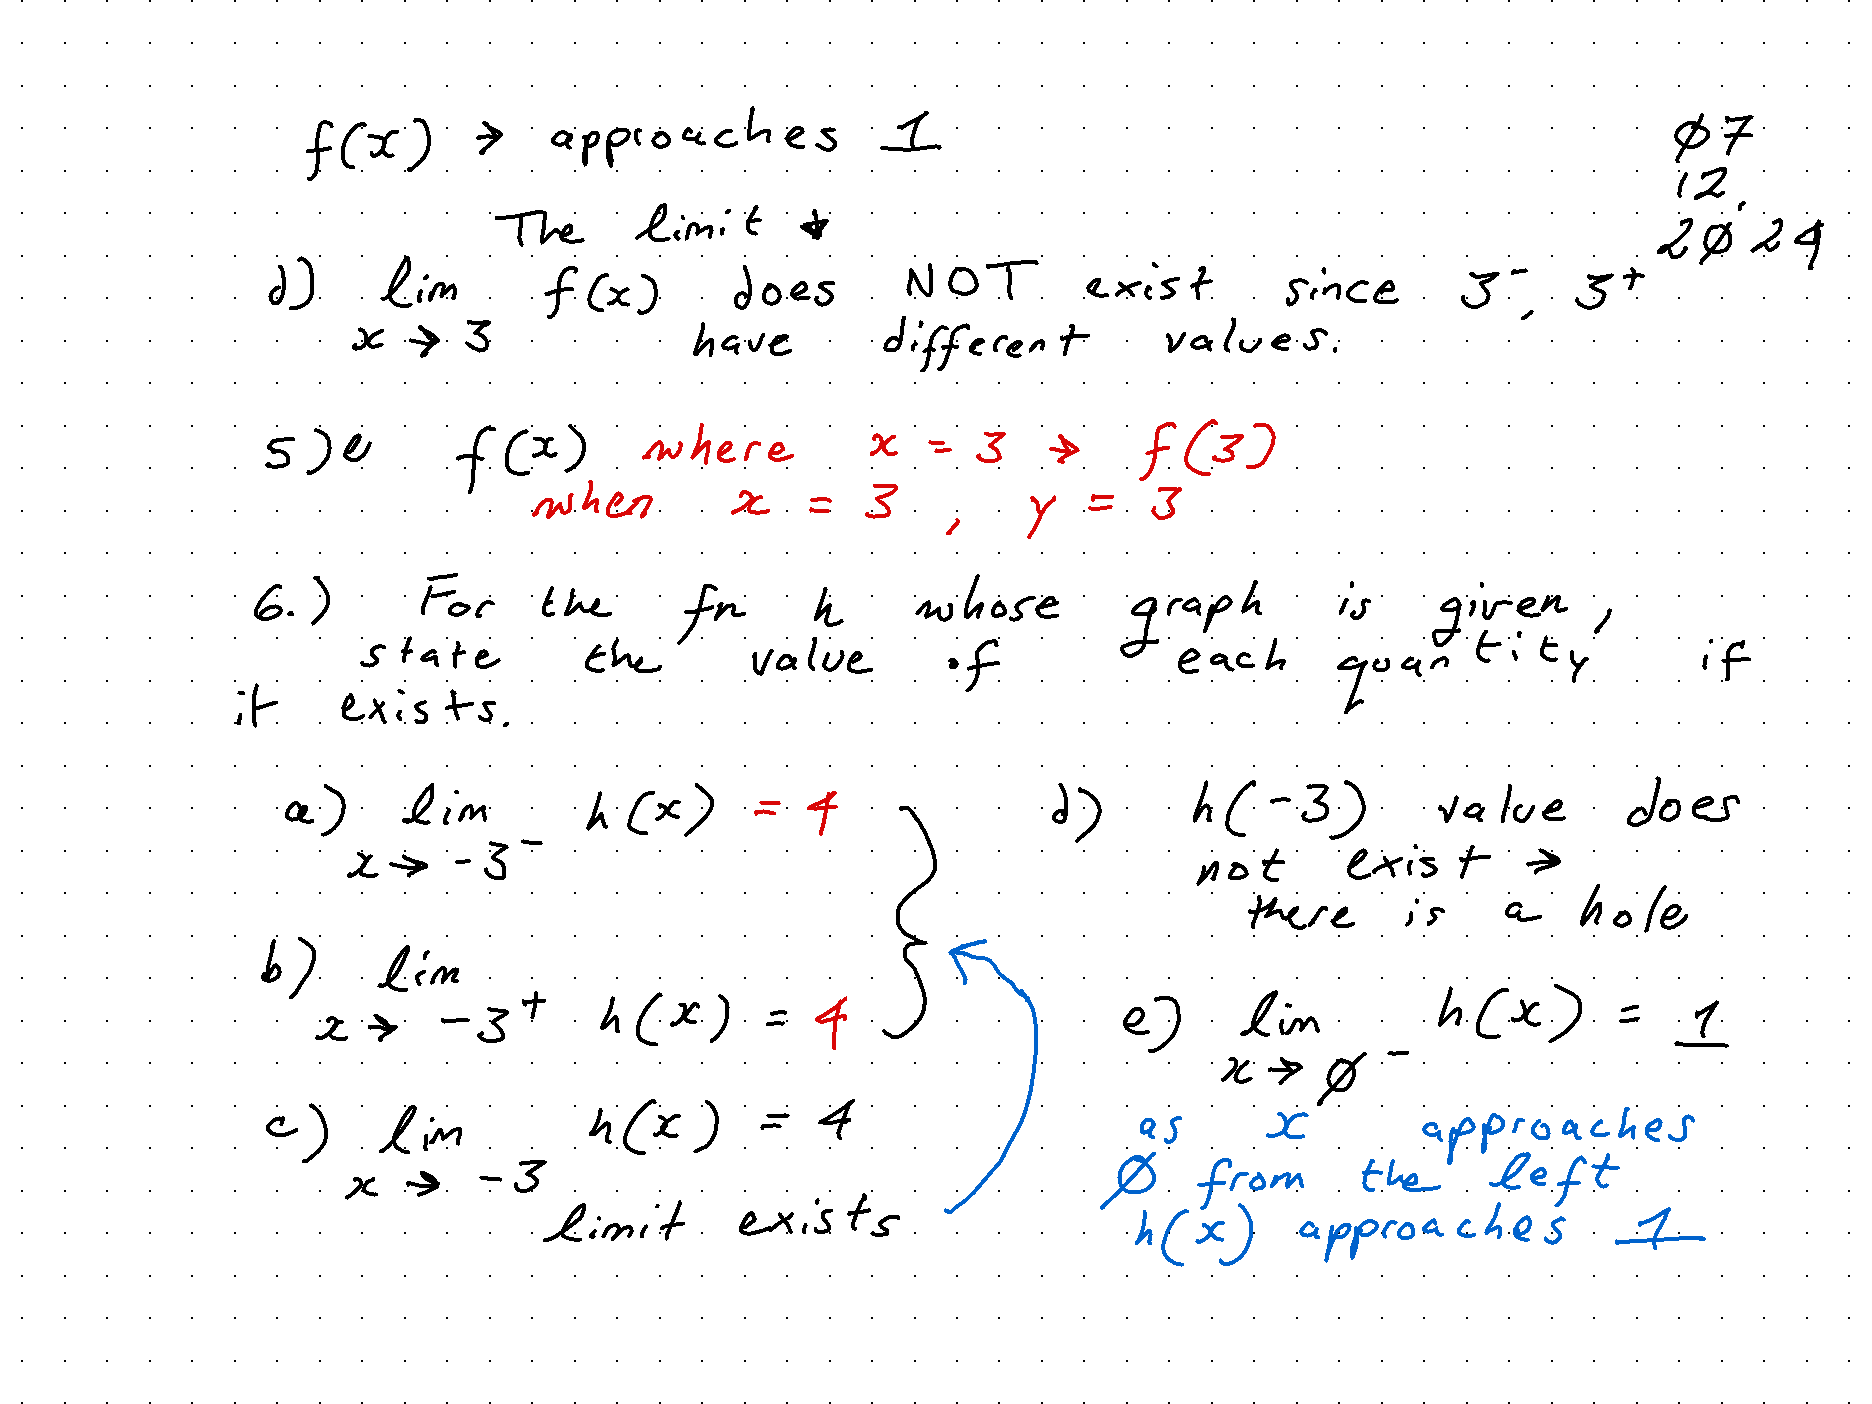 f(x) → approaches 1
07
12,
2024
The limit ↓
d) lim f(x) does NOT exist since 3⁻, 3⁺
x → 3 have different values.
5)e f(x) where x = 3 → f(3)
when x = 3, y = 3
6.) For the fn h whose graph is given,
state the value of each quantity if
it exists.
a) lim h(x) = 4
x → -3⁻
b) lim
x → -3⁺ h(x) = 4
c) lim h(x) = 4
x → -3
limit exists
d) h(-3) value does
not exist →
there is a hole
e) lim h(x) = 1
x → 0⁻
as x approaches
0 from the left
h(x) approaches 1